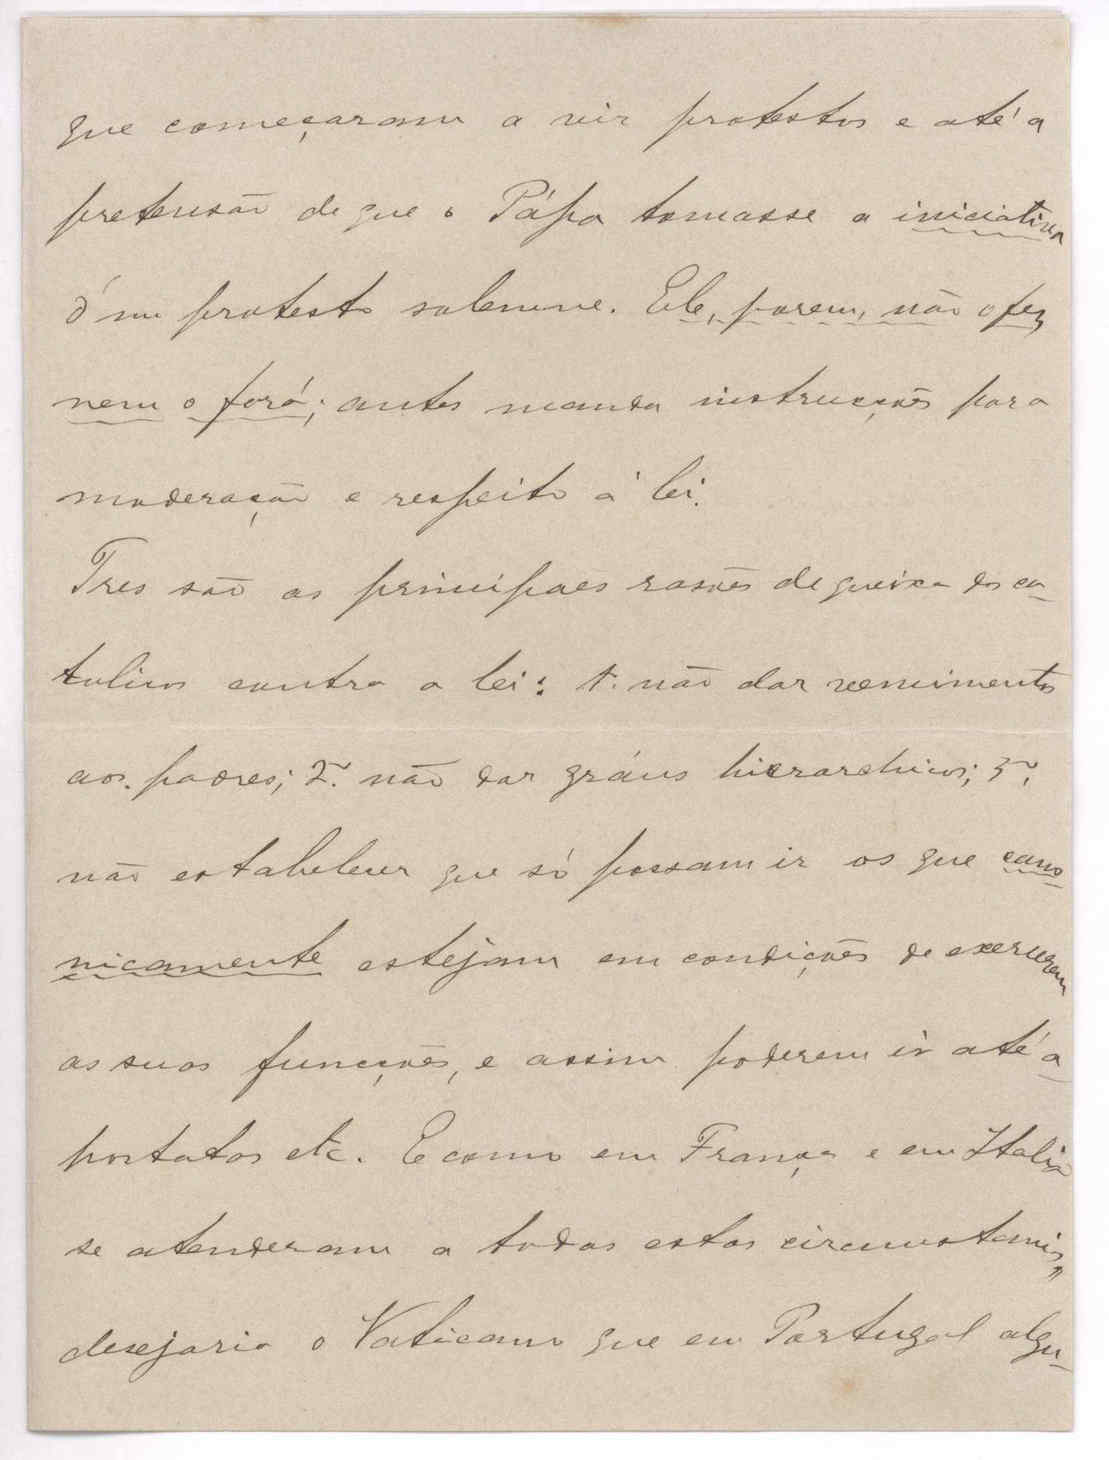 que começaram a vir protestos e até a
pretensão de que o Pápa tomasse a iniciativa
d'um protesto solemne. Ele, porem, não o fez,
nem o fará; antes manda instrucções para
moderação e respeito á lei.
Tres são as principaes rasões de queixa dos ca-
tolicos contra a lei: 1.ª não dar vencimentos
aos padres; 2.ª não dar gráus hierarchicos; 3.ª,
não estabelecer que só possam ir os que cano-
nicamente estejam em condições de exercerem
as suas funcções, e assim poderem ir até a-
postatas etc. E como em França e em Italia
se atenderam a todas estas circumstancias,
desejaria o Vaticano que em Portugal algu-